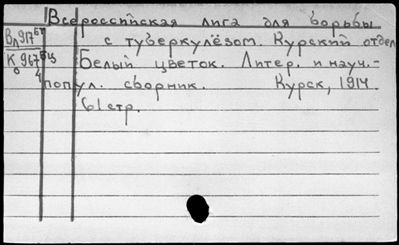 Всероссийская лига для борьбы
с туберкулёзом. Курский отдел
Белый цветок. Литер. и науч.-
попул. сборник. Курск, 1914.
61 стр.